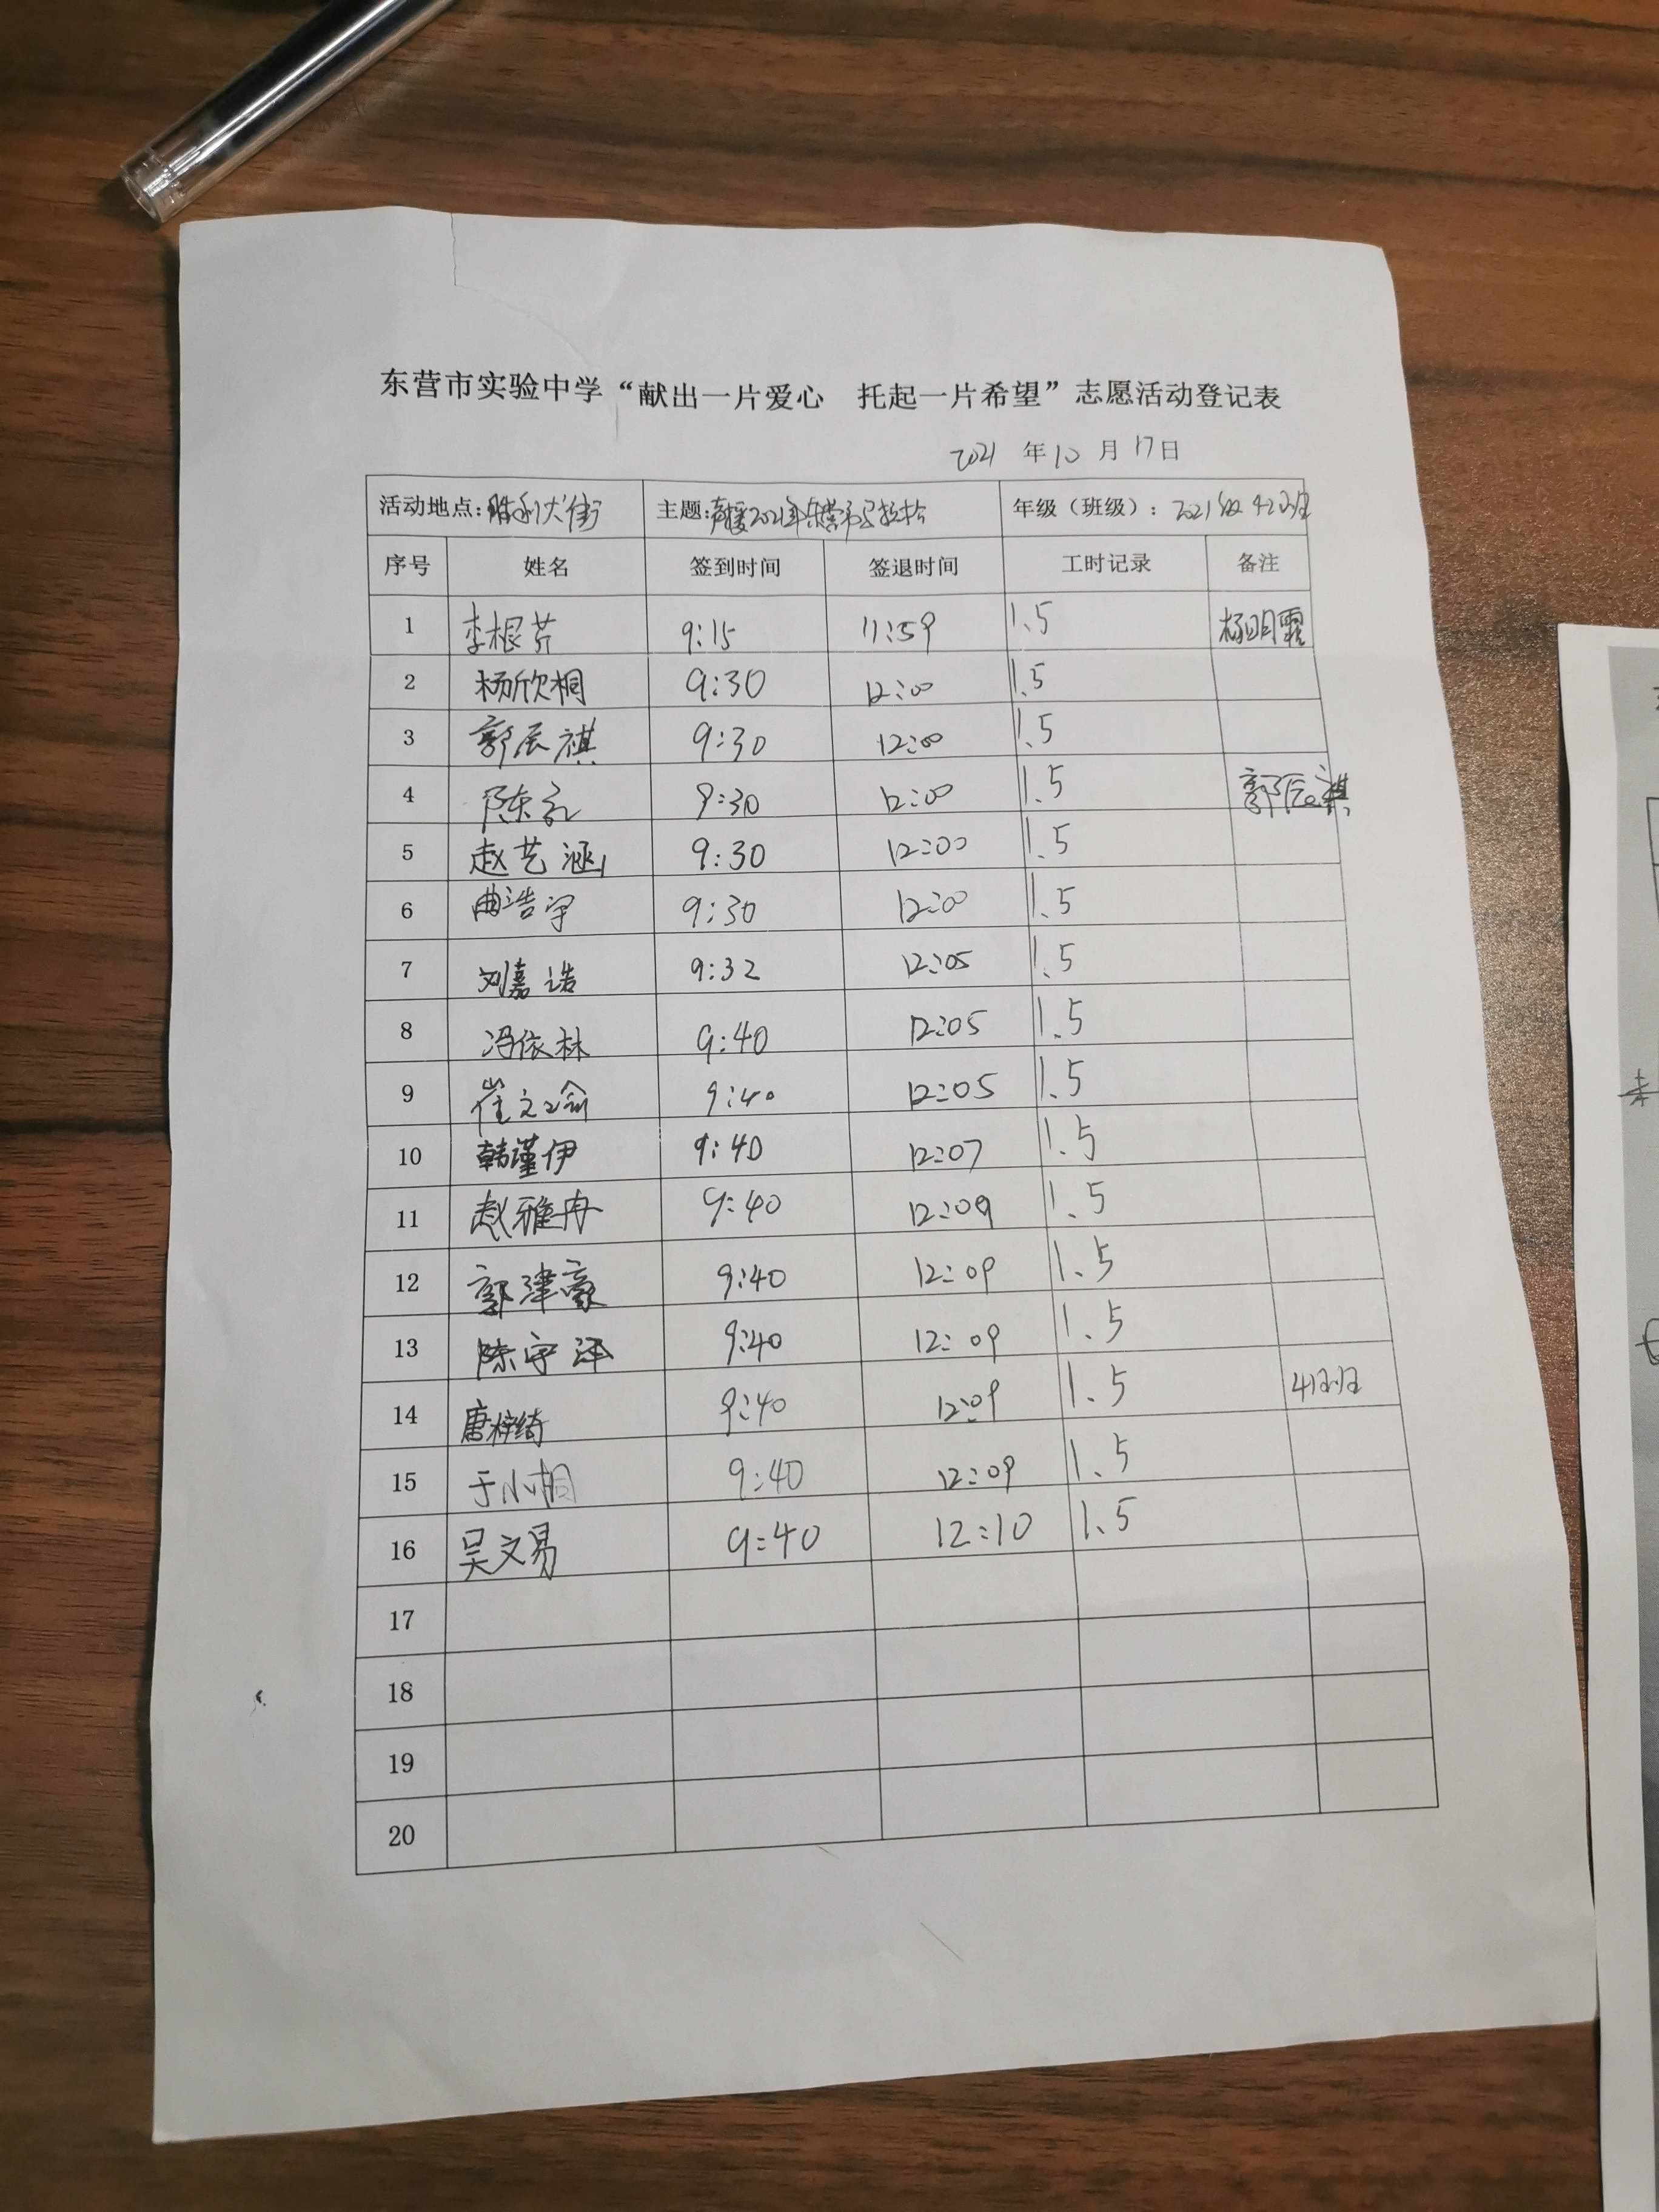 东营市实验中学“献出一片爱心 托起一片希望”志愿活动登记表
2021 年 10 月 17 日
活动地点：胜利大街 主题：声援2021年东营市马拉松 年级（班级）：2021级 42班
序号 姓名 签到时间 签退时间 工时记录 备注
1 李根芹 9:15 11:59 1.5 杨明霞
2 杨欣桐 9:30 12:00 1.5
3 郭辰祺 9:30 12:00 1.5
4 陈 9:30 12:00 1.5 郭辰祺
5 赵艺涵 9:30 12:00 1.5
6 曲浩宇 9:30 12:00 1.5
7 刘嘉诺 9:32 12:05 1.5
8 冯依林 9:40 12:05 1.5
9 崔文 9:40 12:05 1.5
10 韩瑾伊 9:40 12:07 1.5
11 赵雅冉 9:40 12:09 1.5
12 郭津豪 9:40 12:09 1.5
13 陈宇泽 9:40 12:09 1.5
14 唐梓绮 9:40 12:09 1.5 41班
15 于小桐 9:40 12:09 1.5
16 吴文易 9:40 12:10 1.5
17
18
19
20